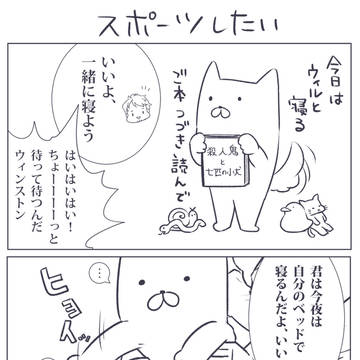 スポーツしたい
今日は
ウィルと
寝る
ご本つづき読んで
殺人鬼
と
七匹の小犬
いいよ、
一緒に寝よう
はいはいはい！
ちょーーーーっと
待って待つんだ
ウィンストン
君は今夜は
自分のベッドで
寝るんだよ、いい
…
ヒョイッ